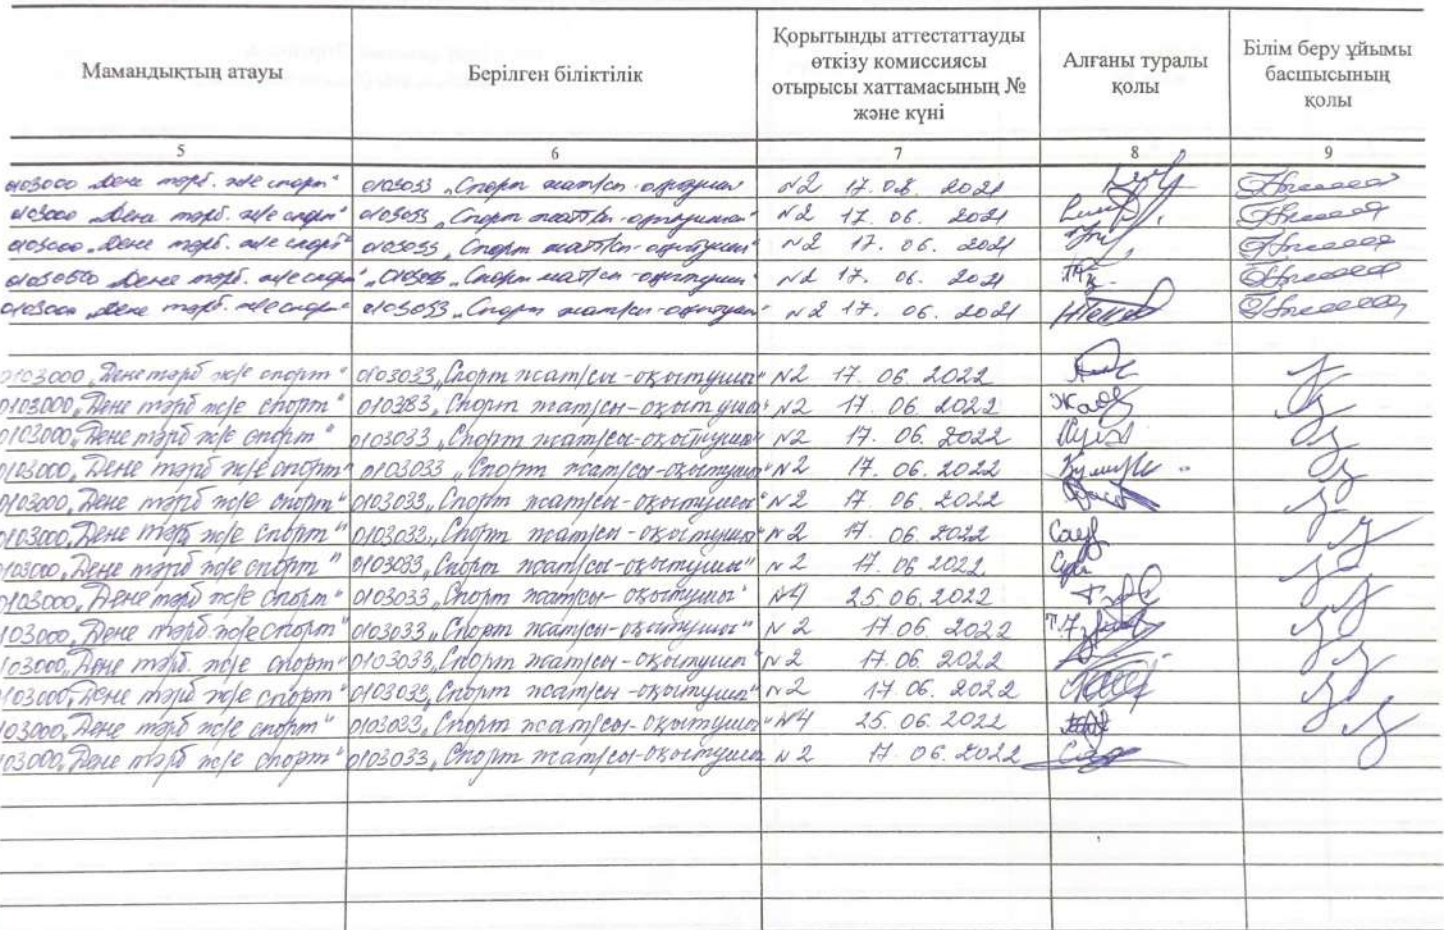 Мамандықтың атауы
Берілген біліктілік
Қорытынды аттестаттауды
өткізу комиссиясы
отырысы хаттамасының №
және күні
Алғаны туралы
қолы
Білім беру ұйымы
басшысының
қолы
5 6 7 8 9
0103000 „Дене тәрб. ж/е спорт" 0103033 „Спорт жат/сы-оқытушы N2 17. 2021
0103000 „Дене тәрб. ж/е спорт" 0103033 „Спорт жатт/сы-оқытушы" N2 17. 06. 2021
0103000 „Дене тәрб. ж/е спорт" 0103033 „Спорт жатт/сы-оқытушы" N2 17. 06. 2021
„Дене тәрб. ж/е спорт" „Спорт жатт/сы-оқытушы" N2 17. 06. 2021
0103000 „Дене тәрб. ж/е спорт" 0103033 „Спорт жат/сы-оқытушы" N2 17. 06. 2021
0103000 „Дене тәрб ж/е спорт" 0103033 „Спорт жат/сы-оқытушы" N2 17. 06. 2022
0103000 „Дене тәрб ж/е спорт" 010383 „Спорт жат/сы-оқытушы" N2 17. 06. 2022
0103000 „Дене тәрб ж/е спорт" 0103033 „Спорт жат/сы-оқытушы" N2 17. 06. 2022
0103000 „Дене тәрб ж/е спорт" 0103033 „Спорт жат/сы-оқытушы" N2 17. 06. 2022
0103000 „Дене тәрб ж/е спорт" 0103033 „Спорт жат/сы-оқытушы" N2 17 06. 2022
0103000 „Дене тәрб ж/е спорт" 0103033 „Спорт жат/сы-оқытушы" N2 17. 06 2022
0103000 „Дене тәрб ж/е спорт" 0103033 „Спорт жат/сы-оқытушы" N2 17. 06 2022
0103000 „Дене тәрб ж/е спорт" 0103033 „Спорт жат/сы-оқытушы" N4 25.06.2022
103000 „Дене тәрб ж/е спорт" 0103033 „Спорт жат/сы-оқытушы" N2 17.06.2022
103000 „Дене тәрб. ж/е спорт" 0103033 „Спорт жат/сы-оқытушы" N2 17.06.2022
103000 „Дене тәрб ж/е спорт" 0103033 „Спорт жат/сы-оқытушы" N2 17.06.2022
03000 „Дене тәрб ж/е спорт" 0103033 „Спорт жат/сы-оқытушы" N4 25.06.2022
03000 „Дене тәрб ж/е спорт" 0103033 „Спорт жат/сы-оқытушы" N2 17.06.2022